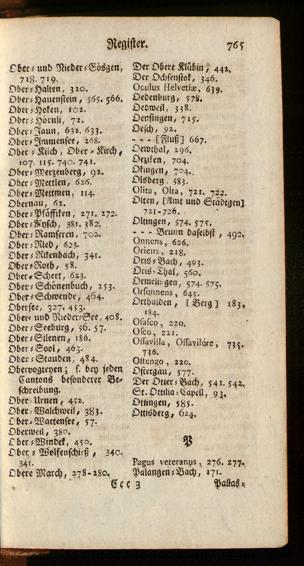 Register. 765
Ober- und Nieder-Gösgen,
718. 719.
Ober-Halten, 320.
Ober-Hauenstein, 565. 566.
Ober-Hoken, 102.
Ober-Hörnli, 72.
Ober-Jaun, 632. 633.
Ober-Immensee, 268.
Ober-Kilch, Ober-Kirch,
107. 115. 740. 741.
Ober-Merzenberg, 92.
Ober-Mettlen, 626.
Ober-Mettmen, 114.
Obernau, 62.
Ober-Pfäffiken, 271. 272.
Ober-Rhsch, 381, 382.
Ober-Ramseren, 702.
Ober-Ried, 623.
Ober-Rikenbach, 341.
Ober-Roth, 58.
Ober-Schert, 623.
Ober-Schönenbuch, 253.
Ober-Schwende, 464.
Obersee, 327. 453.
Ober- und Nieder-See, 408.
Ober-Seeburg, 56. 57.
Ober-Silenen, 186.
Ober-Sool, 463.
Ober-Stauden, 484.
Obervogteyen; s. bey jeden
Cantons besonderer Be-
schreibung.
Ober-Urnen, 452.
Ober-Walchweil, 383.
Ober-Wartensee, 57.
Oberweil, 380.
Ober-Windek, 450.
Ober-Wolfenschieß, 340.
341.
Obere March, 278-280.
Der Obere Klübin, 442.
Der Ochsenstok, 346.
Oculus Helvetiæ, 639.
Oedenburg, 578.
Oedweil, 338.
Oensingen, 715.
Oesch, 92.
- - - [Fluß] 667.
Oewthal, 296.
Oeziken, 704.
Oftingen, 704.
Olsberg, 583.
Olita, Olta, 721. 722.
Olten, [Amt und Städtgen]
721-726.
Oltingen, 574. 575.
- - - Brunn daselbst, 492.
Onnens, 626.
Oriens, 218.
Oris-Bach, 493.
Oris-Thal, 560.
Ormelingen, 574. 575.
Orsonnens, 645.
Orthalden, [Berg] 183,
184.
Osasco, 220.
Osco, 221.
Ossavilla, Ossavilare, 735.
736.
Ostengo, 220.
Ostergau, 577.
Der Otter-Bach, 541. 542.
St. Ottilia-Capell, 93.
Ottingen, 585.
Ottisberg, 624.
P
Pagus veteranus, 276. 277.
Palangen-Bach, 171.
Ccc 3 Pallas-